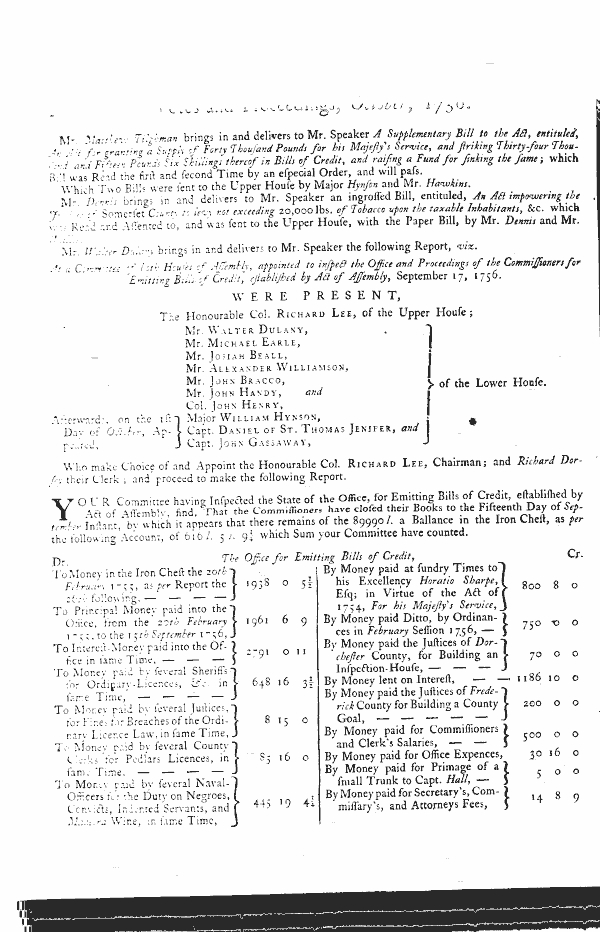 and Proceedings, October, 1756.
Mr. Matthew Tilghman brings in and delivers to Mr. Speaker A Supplementary Bill to the Act, entituled,
An Act for granting a Supply of Forty Thouſand Pounds for his Majeſty's Service, and ſtriking Thirty-four Thou-
ſand and Fifteen Pounds Six Shillings thereof in Bills of Credit, and raiſing a Fund for ſinking the ſame; which
Bill was Read the firſt and ſecond Time by an eſpecial Order, and will paſs.
Which Two Bills were ſent to the Upper Houſe by Major Hynſon and Mr. Hawkins.
Mr. Dennis brings in and delivers to Mr. Speaker an ingroſſed Bill, entituled, An Act impowering the
of Somerſet County to levy not exceeding 20,000 lbs. of Tobacco upon the taxable Inhabitants, &c. which
was Read and Aſſented to, and was ſent to the Upper Houſe, with the Paper Bill, by Mr. Dennis and Mr.
Mr. Walter Dulany brings in and delivers to Mr. Speaker the following Report, viz.
At a Committee of both Houſes of Aſſembly, appointed to inſpect the Office and Proceedings of the Commiſſioners for
Emitting Bills of Credit, eſtabliſhed by Act of Aſſembly, September 17, 1756.
WERE PRESENT,
The Honourable Col. RICHARD LEE, of the Upper Houſe;
Mr. WALTER DULANY,
Mr. MICHAEL EARLE,
Mr. JOSIAH BEALL,
Mr. ALEXANDER WILLIAMSON,
Mr. JOHN BRACCO,
Mr. JOHN HANDY, and
Col. JOHN HENRY,
of the Lower Houſe.
Afterwards, on the 1ſt
Day of October, Ap-
peared,
Major WILLIAM HYNSON,
Capt. DANIEL OF ST. THOMAS JENIFER, and
Capt. JOHN GASSAWAY,
Who make Choice of and Appoint the Honourable Col. RICHARD LEE, Chairman; and Richard Dor-
ſey their Clerk; and proceed to make the following Report.
YOUR Committee having Inſpected the State of the Office, for Emitting Bills of Credit, eſtabliſhed by
Act of Aſſembly, find, That the Commiſſioners have cloſed their Books to the Fifteenth Day of Sep-
tember Inſtant, by which it appears that there remains of the 89990 l. a Ballance in the Iron Cheſt, as per
the following Account, of 616 l. 5 s. 9½ which Sum your Committee have counted.
Dr. The Office for Emitting Bills of Credit, Cr.
To Money in the Iron Cheſt the 20th
February 1755, as per Report the
26th following, — — — 1938 0 5½
To Principal Money paid into the
Office, from the 20th February
1755, to the 15th September 1756, 1961 6 9
To Intereſt-Money paid into the Of-
fice in ſame Time, — — — 2791 0 11
To Money paid by ſeveral Sheriffs
for Ordinary-Licences, &c. in
ſame Time, 648 16 3½
To Money paid by ſeveral Juſtices,
for Fines for Breaches of the Ordi-
nary Licence Law, in ſame Time, 8 15 0
To Money paid by ſeveral County
Clerks for Pedlars Licences, in
ſame Time, — — — — 85 16 0
To Money paid by ſeveral Naval-
Officers for the Duty on Negroes,
Convicts, Indented Servants, and
Madeira Wine, in ſame Time, 445 19 4½
By Money paid at ſundry Times to
his Excellency Horatio Sharpe,
Eſq; in Virtue of the Act of
1754, For his Majeſty's Service, 800 8 0
By Money paid Ditto, by Ordinan-
ces in February Seſſion 1756, — 750 0 0
By Money paid the Juſtices of Dor-
cheſter County, for Building an
Inſpection-Houſe, — — — 70 0 0
By Money lent on Intereſt, — — 1186 10 0
By Money paid the Juſtices of Frede-
rick County for Building a County
Goal, — — — — — 200 0 0
By Money paid for Commiſſioners
and Clerk's Salaries, — — 500 0 0
By Money paid for Office Expences, 30 16 0
By Money paid for Primage of a
ſmall Trunk to Capt. Hall, — 5 0 0
By Money paid for Secretary's, Com-
miſſary's, and Attorneys Fees, 14 8 9